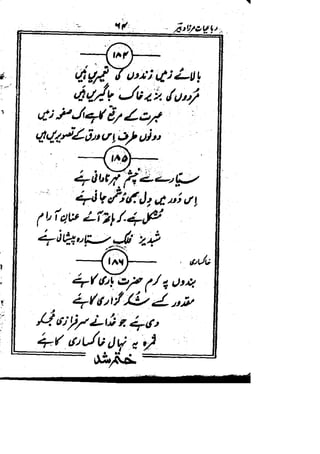 رباعیات مرزا دبیر
۶۴
۱۸۴
بالائے زمیں زندوں کی تعمیریں ہیں
مُردوں کی بزیرِ خاک جاگیریں ہیں
عبرت کے مرقع کا ہے اک صفحہ زمیں
دونوں طرف اس ورق کے تصویریں ہیں
۱۸۵
سیّارے سے چشمِ مہر نادانی ہے
اس دَور میں دل بھی دُشمنِ جانی ہے
مشکل ہے کہ ہاتھ آئے عنانِ آرام
شبدیزِ فلک ستارہ پیشانی ہے
۱۸۶
خاکساری
بندوں پہ کرم حضرتِ باری کا ہے
مقدور کسے شکر گزاری کا ہے
دی ہے جو خُدا نے سرفرازی مجھکو
ثمرہ یہ نہالِ خاکساری کا ہے
ختم شد